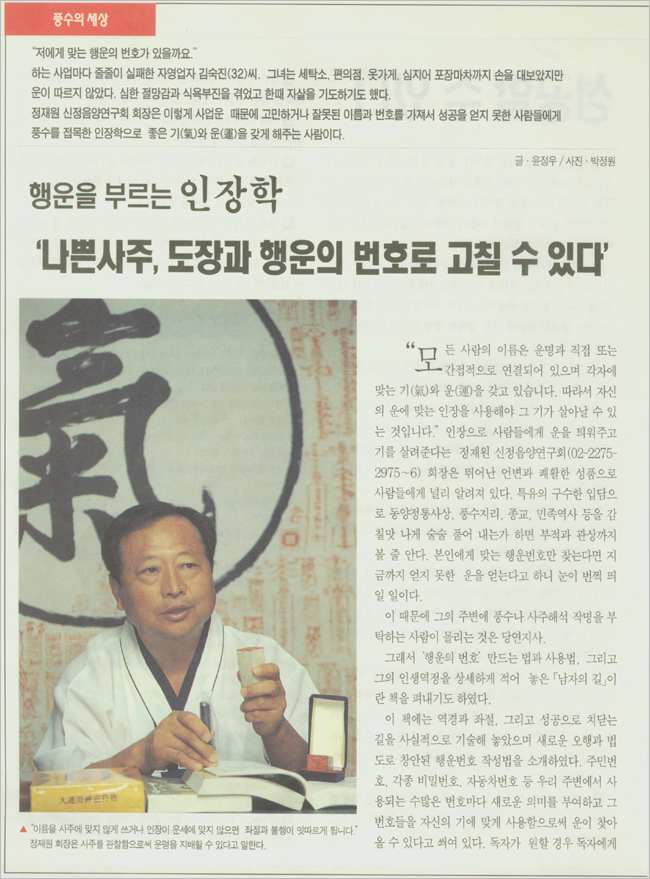 풍수의 세상
"저에게 맞는 행운의 번호가 있을까요."
하는 사업마다 줄줄이 실패한 자영업자 김숙진(32)씨. 그녀는 세탁소, 편의점, 옷가게, 심지어 포장마차까지 손을 대보았지만
운이 따르지 않았다. 심한 절망감과 식욕부진을 겪었고 한때 자살을 기도하기도 했다.
정재원 신정음양연구회 회장은 이렇게 사업운 때문에 고민하거나 잘못된 이름과 번호를 가져서 성공을 얻지 못한 사람들에게
풍수를 접목한 인장학으로 좋은 기(氣)와 운(運)을 갖게 해주는 사람이다.
글·윤정우 / 사진·박정원
행운을 부르는 인장학
'나쁜사주, 도장과 행운의 번호로 고칠 수 있다'
氣
"모든 사람의 이름은 운명과 직접 또는
간접적으로 연결되어 있으며 각자에
맞는 기(氣)와 운(運)을 갖고 있습니다. 따라서 자신
의 운에 맞는 인장을 사용해야 그 기가 살아날 수 있
는 것입니다." 인장으로 사람들에게 운을 틔워주고
기를 살려준다는 정재원 신정음양연구회(02-2275-
2975~6) 회장은 뛰어난 언변과 쾌활한 성품으로
사람들에게 널리 알려져 있다. 특유의 구수한 입담으
로 동양정통사상, 풍수지리, 종교, 민족역사 등을 감
칠맛 나게 술술 풀어 내는가 하면 부적과 관상까지
볼 줄 안다. 본인에게 맞는 행운번호만 찾는다면 지
금까지 얻지 못한 운을 얻는다고 하니 눈이 번쩍 띄
일 일이다.
이 때문에 그의 주변에 풍수나 사주해석 작명을 부
탁하는 사람이 몰리는 것은 당연지사.
그래서 '행운의 번호' 만드는 법과 사용법, 그리고
그의 인생역정을 상세하게 적어 놓은 「남자의 길」이
란 책을 펴내기도 하였다.
이 책에는 역경과 좌절, 그리고 성공으로 치닫는
길을 사실적으로 기술해 놓았으며 새로운 오행과 법
도로 창안된 행운번호 작성법을 소개하였다. 주민번
호, 각종 비밀번호, 자동차번호 등 우리 주변에서 사
용되는 수많은 번호마다 새로운 의미를 부여하고 그
번호들을 자신의 기에 맞게 사용함으로써 운이 찾아
올 수 있다고 씌여 있다. 독자가 원할 경우 독자에게
▲ "이름을 사주에 맞지 않게 쓰거나 인장이 운세에 맞지 않으면 좌절과 불행이 잇따르게 됩니다."
정재원 회장은 사주를 관찰함으로써 운명을 지배할 수 있다고 말한다.